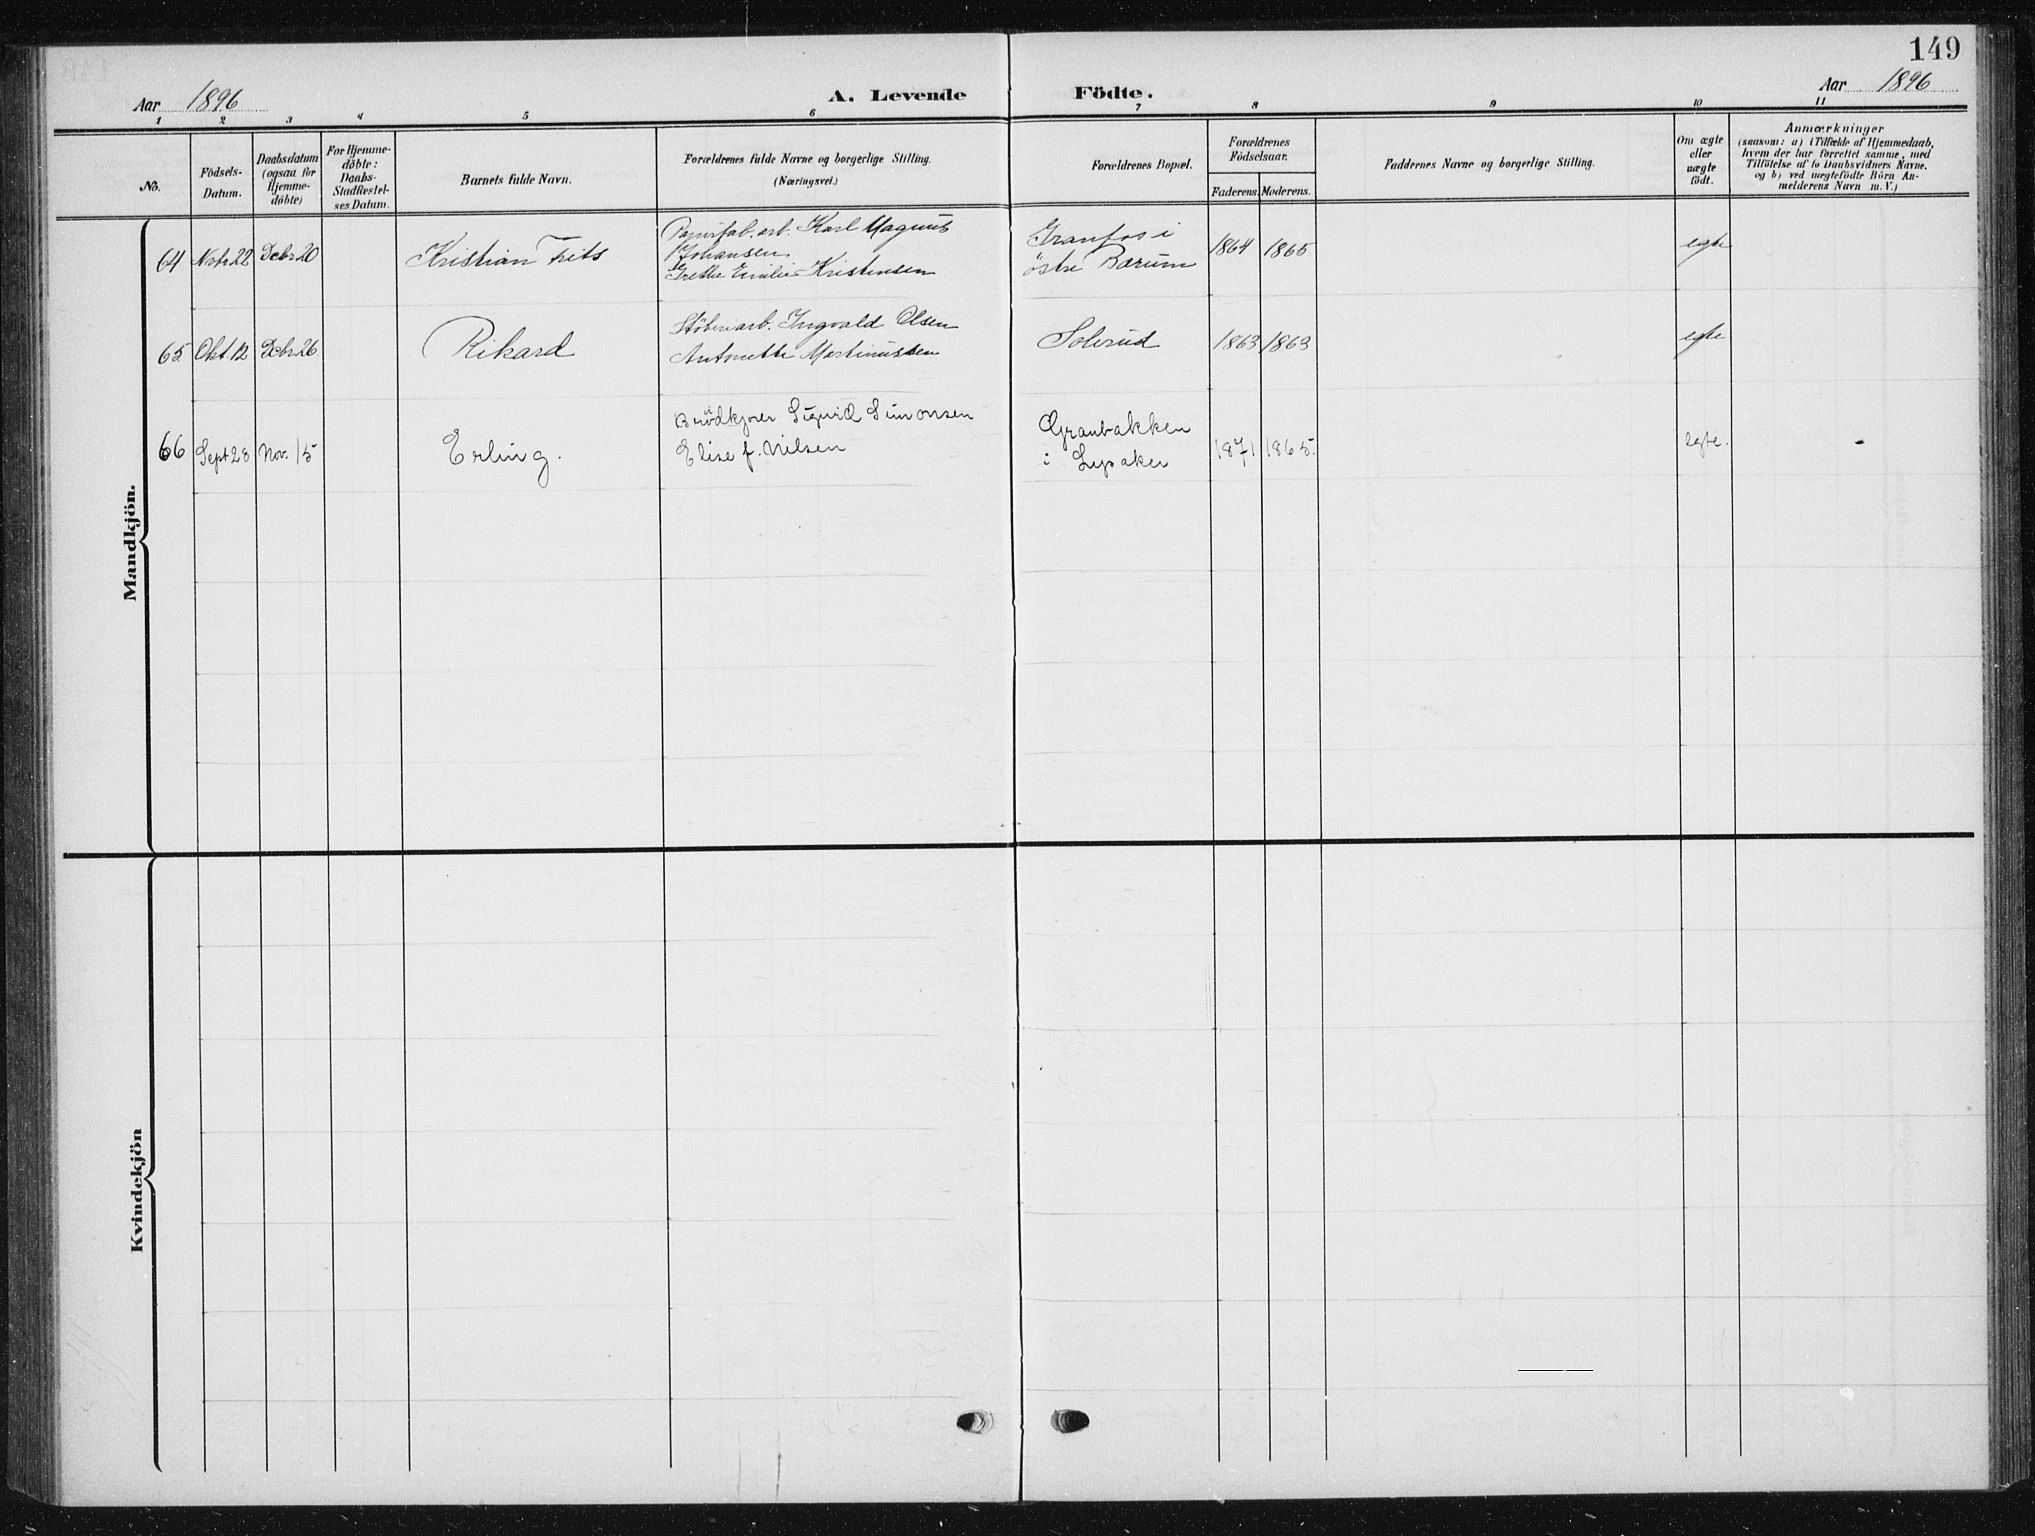 149
Aar 1896
A. Levende Födte.
Aar 1896
1 2 3 4 5 6 7 8 9 10 11
No.
Födsels-Datum.
Daabsdatum (ogsaa for Hjemme-döbte)
For Hjemme-döbte: Daabs-Stadfæstel-ses Datum.
Barnets fulde Navn.
Forældrenes fulde Navne og borgerlige Stilling.
(Næringsvei.)
Forældrenes Bopæl.
Forældrenes Födselsaar.
Faderens. Moderens.
Faddernes Navne og borgerlige Stilling.
Om ægte eller uægte födt.
Anmærkninger
(saasom: a) i Tilfælde af Hjemmedaab,
hvem der har forrettet samme, med
Tilföielse af to Daabsvidners Navne.
og b) ved uægtefödte Börn An-
melderens Navn m. V.)
Mandkjön.
64 Novbr 22 Dcbr 20 Kristian Frits
Papirfab. arb. Karl Magnus
Johansen
Grethe Emilie Kristensen
Granfos i
östre Bærum
1864 1865 egte
65 Okt. 12 Dcbr 26 Rikard
Stöberiarb. Ingvald Olsen
Antonette Martinussen
Solerud
1863 1863 egte
66 Sept 28 Nov. 15 Erling.
Brödkjører Sigurd Simonsen
Elise f. Nilsen
Granbakken
i Lysaker
1871 1865. egte.
Kvindekjön